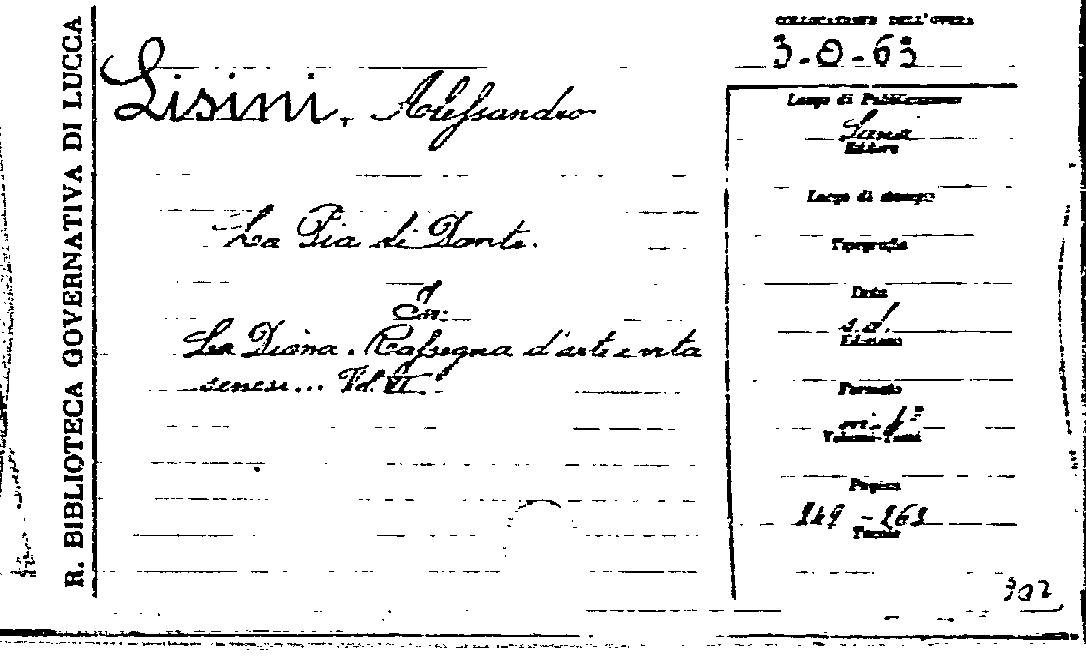 R. BIBLIOTECA GOVERNATIVA DI LUCCA
COLLOCAZIONE DELL'OPERA
3-O-63
Lisini, Alessandro
La Pia di Dante.
In:
La Diana. Rassegna d'arte e vita
senese... Vol. VI
Luogo di Pubblicazione
Siena
Editore
Luogo di stampa
Tipografia
Data
s.d.
Edizione
Formato
in-4°
Volumi-Tomi
Pagine
249-263
Tavole
302